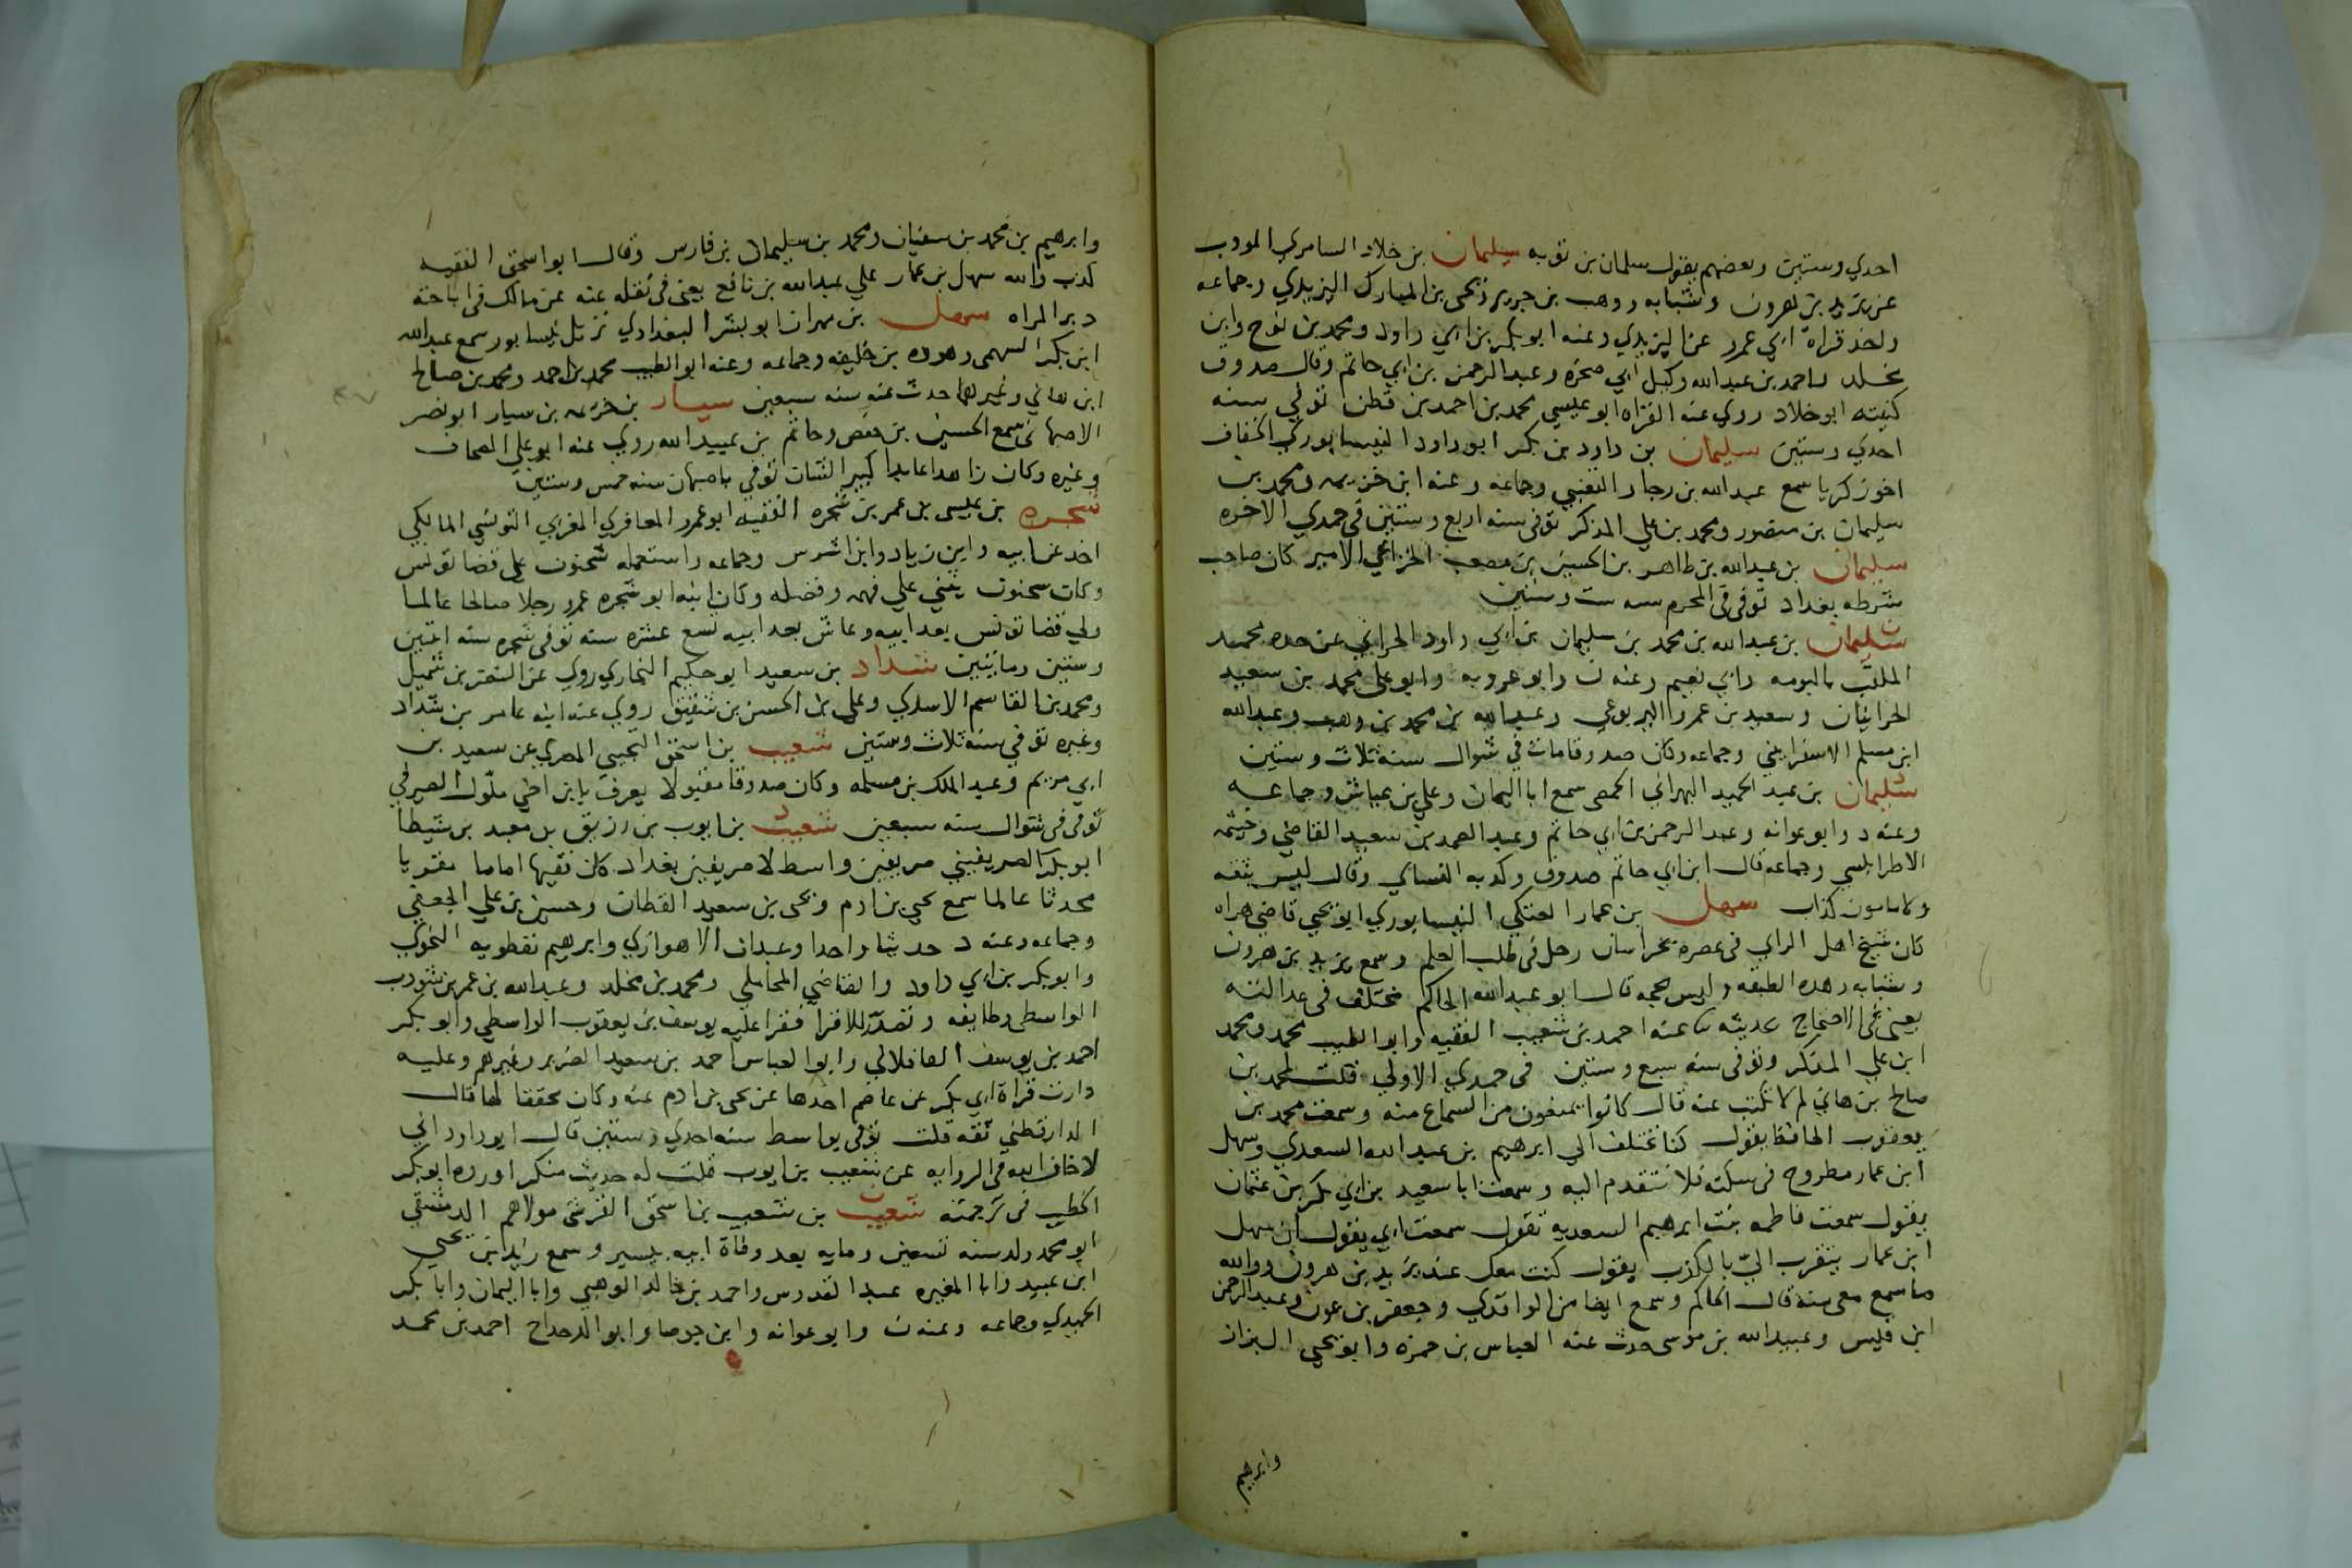 احدي وستين وبعضهم يقول سلمان بن توبه سليمان بن خلاد السامري المودب
عن يزيد بن هرون وشبابه ووهب بن جرير ويحيى بن المبارك اليزيدي وجماعه
واخذ قراة ابي عمرو عن اليزيدي وعنه ابو بكر بن ابي داود ومحمد بن نوح وابن
مخلد واحمد بن عبدالله وكيل ابي صخره وعبد الرحمن بن ابي حاتم وقال صدوق
كنيته ابو خلاد روي عنه القراه ابو عيسي محمد بن احمد بن قطن توفي سنه
احدي وستين سليمان بن داود بن بكر ابو داود النيسابوري الخفاف
اخو زكريا سمع عبدالله بن رجا والقعنبي وجماعه وعنه ابن خزيمه ومحمد بن
سليمان بن منصور ومحمد بن علي المذكر توفى سنه اربع وستين في جمدي الاخره
سليمان بن عبدالله بن طاهر بن الحسين بن مصعب الخزاعي الامير كان صاحب
شرطه بغداد توفى في المحرم سنه ست وستين
سليمان بن عبدالله بن محمد بن سليمان بن ابي داود الحراني عن جده محمد
الملقب بالبومه وابي نعيم وعنه ن وابو عروبه وابو علي محمد بن سعيد
الحرانيان وسعيد بن عمرو البربوعي وعبدالله بن محمد بن وهب وعبدالله
ابن مسلم الاسفرايني وجماعه وكان صدوقا مات في شوال سنه ثلاث وستين
سليمان بن عبد الحميد البهراني الحمصي سمع ابا اليمان وعلي بن عياش وجماعه
وعنه د وابو عوانه وعبد الرحمن بن ابي حاتم وعبد الصمد بن سعيد القاضي وخيثمه
الاطرابلسي وجماعه قال ابن ابي حاتم صدوق وكذبه النساي وقال ليس بثقه
ولا مامون كذاب سهل بن عمار العتكي النيسابوري ابو يحيي قاضي هراه
كان شيخ اهل الراي في عصره بخراسان رحل في طلب العلم وسمع يزيد بن هرون
وشبابه وهذه الطبقه وليس بحجه قال ابو عبدالله الحاكم مختلف في عدالته
يعني في الاحتجاج بحديثه عنه احمد بن شعيب الفقيه وابو الطيب محمد ومحمد
ابن علي المذكر وتوفى سنه سبع وستين في جمدي الاولي قلت لمحمد بن
صالح بن هاني لم لا تكتب عنه قال كانوا يمنعون من السماع منه وسمعت محمد بن
يعقوب الحافظ يقول كنا نختلف الي ابرهيم بن عبدالله السعدي وسهل
ابن عمار مطروح في سكته فلا نتقدم اليه وسمعت ابا سعيد بن ابي بكر بن عثمان
يقول سمعت فاطمه بنت ابرهيم السعديه تقول سمعت ابي يقول ان سهل
ابن عمار يتقرب الىّ بالكذب يقول كنت معك عند يزيد بن هرون ووالله
ما سمع معى منه قال الحاكم وسمع ايضا من الواقدي وجعفر بن عون وعبد الرحمن
ابن قيس وعبيدالله بن موسى حدث عنه العباس بن حمزه وابو يحيى البزاز
وابرهيم
وابرهيم بن محمد بن سفيان ومحمد بن سليمان بن فارس وقال ابو اسحق الفقيه
كذب والله سهل بن عمار علي عبدالله بن نافع يعني في نقله عنه عن مالك في اباحته
دبر المراه سهل بن مهران ابو بشر البغدادي نزيل نيسابور سمع عبدالله
ابن بكر السهمي وهوذه بن خليفه وجماعه وعنه ابو الطيب محمد بن احمد ومحمد بن صالح
ابن هاني وغيرهما حدث عنه سنه سبعين سيار بن خزيمه بن سيار ابو نصر
الاصبهاني سمع الحسين بن حفص وحاتم بن عبيدالله روي عنه ابو علي الصحاف
وغيره وكان زاهدا عابدا كبير الشان توفي باصبهان سنه خمس وستين
شجره بن عيسى بن عمر بن شجره الفقيه ابو عمرو المعافري المغربي التونسي المالكي
اخذ عن ابيه وابن زياد وابن اشرس وجماعه واستعمله سحنون على قضا تونس
وكان سحنون يثني علي فهمه وفضله وكان ابنه ابو شجره عمرو رجلا صالحا عالما
ولي قضا تونس بعد ابيه وعاش بعد ابيه تسع عشره سنه توفى شجره سنه اثنين
وستين ومايتين شداد بن سعيد ابو حكيم البخاري روي عن النضر بن شميل
ومحمد بن القاسم الاسدي وعلي بن الحسن بن شقيق روي عنه ابنه عامر بن شداد
وغيره توفي سنه ثلاث وستين شعيب بن اسحق التجيبي المصري عن سعيد بن
ابي مريم وعبد الملك بن مسلمه وكان صدوقا مقبولا يعرف بابن اخي ملّول الصيرفي
توفى في شوال سنه سبعين شعيب بن ايوب بن رزيق بن معبد بن شيطا
ابو بكر الصريفيني صريفين واسط لا صريفين بغداد كان فقيها اماما مقريا
محدثا عالما سمع يحيي بن ادم ويحيى بن سعيد القطان وحسين بن علي الجعفي
وجماعه وعنه د حديثا واحدا وعبدان الاهوازي وابرهيم نفطويه النحوي
وابو بكر بن ابي داود والقاضي المحاملي ومحمد بن مخلد وعبدالله بن عمر بن شوذب
الواسطي وطايفه وتصدّر للاقرا فقرا عليه يوسف بن يعقوب الواسطي وابو بكر
احمد بن يوسف القافلاني وابو العباس احمد بن سعيد الضرير وغيرهم وعليه
دارت قراة ابي بكر عن عاصم اخذها عن يحيى بن ادم عنه وكان محققا لها قال
الدارقطني ثقه قلت توفى بواسط سنه احدي وستين قال ابو داود اني
لا خاف الله في الروايه عن شعيب بن ايوب قلت له حديث منكر اورده ابو بكر
الخطيب في ترجمته شعيب بن شعيب بن اسحق القرشي مولاهم الدمشقي
ابو محمد ولد سنه تسعين ومايه بعد وفاة ابيه بيسير وسمع زيد بن يحيي
ابن عبيد وابا المغيره عبد القدوس واحمد بن خالد الوهبي وابا اليمان وابا بكر
الحميدي وجماعه وعنه ن وابو عوانه وابن جوصا وابو الدحداح احمد بن محمد